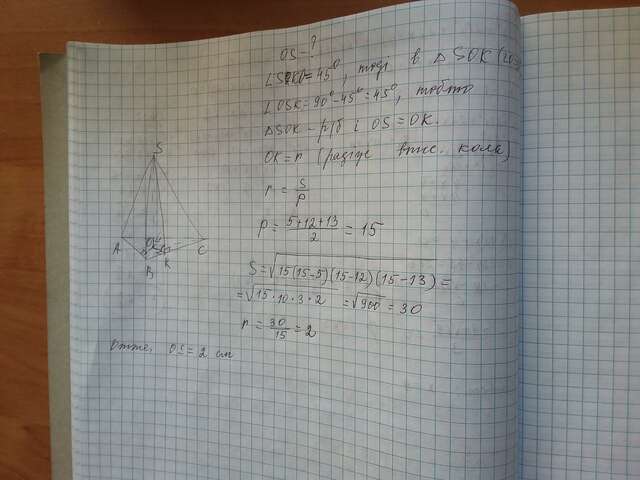 OS-?
∠SKO=45°, тоді в △SOK
∠OSK=90°-45°=45°, тобто
△SOK - р/б і OS=OK.
OK=r (радіус впис. кола)
r = S/p
p = (5+12+13)/2 = 15
S=√15(15-5)(15-12)(15-13) =
=√15·10·3·2 =√900 = 30
r = 30/15 = 2
Отже, OS = 2 см
S
A
O
B
K
C